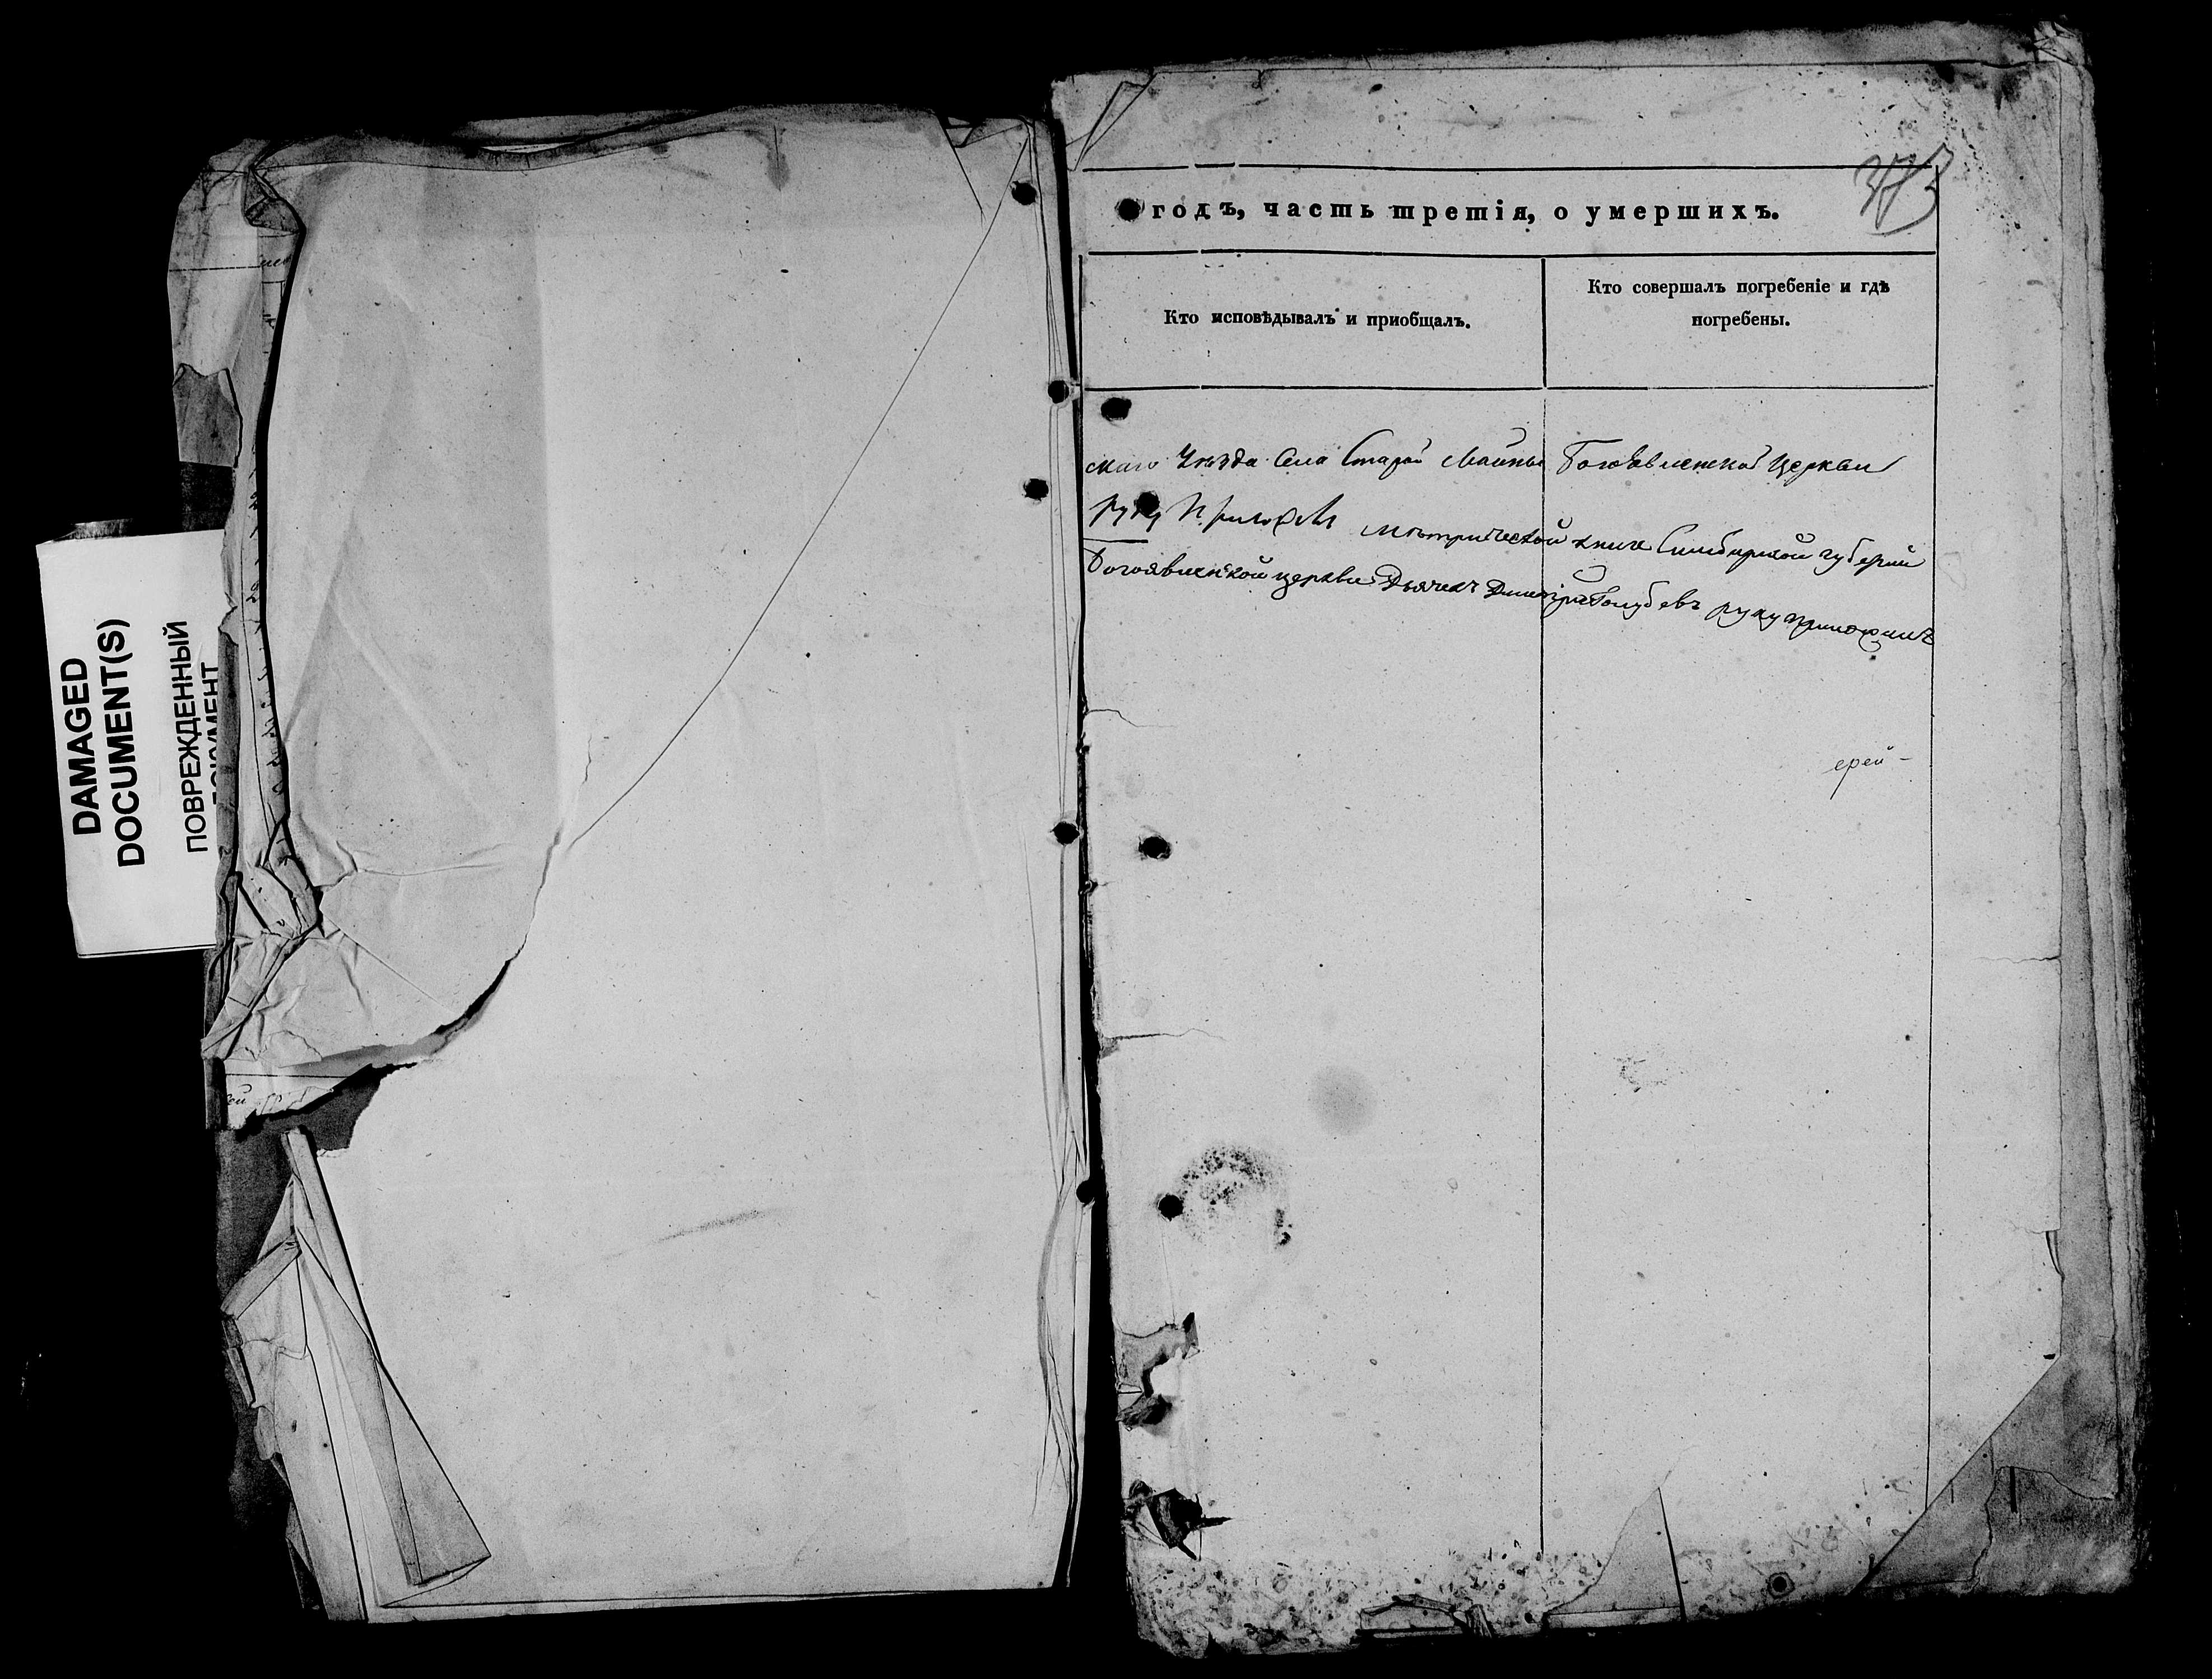 DAMAGED
DOCUMENT(S)
ПОВРЕЖДЕННЫЙ
ДОКУМЕНТ
годъ, часть третія, о умершихъ.
Кто исповѣдывалъ и приобщалъ.
Кто совершалъ погребеніе и гдѣ
погребены.
скаго Уѣзда Села Старой Майны Богоявленской Церкви
руку Приложилъ метрической книге Симбирской губерніи
Богоявленской церкви Дьячекъ Димитрій Голубевъ руку приложилъ
ерей